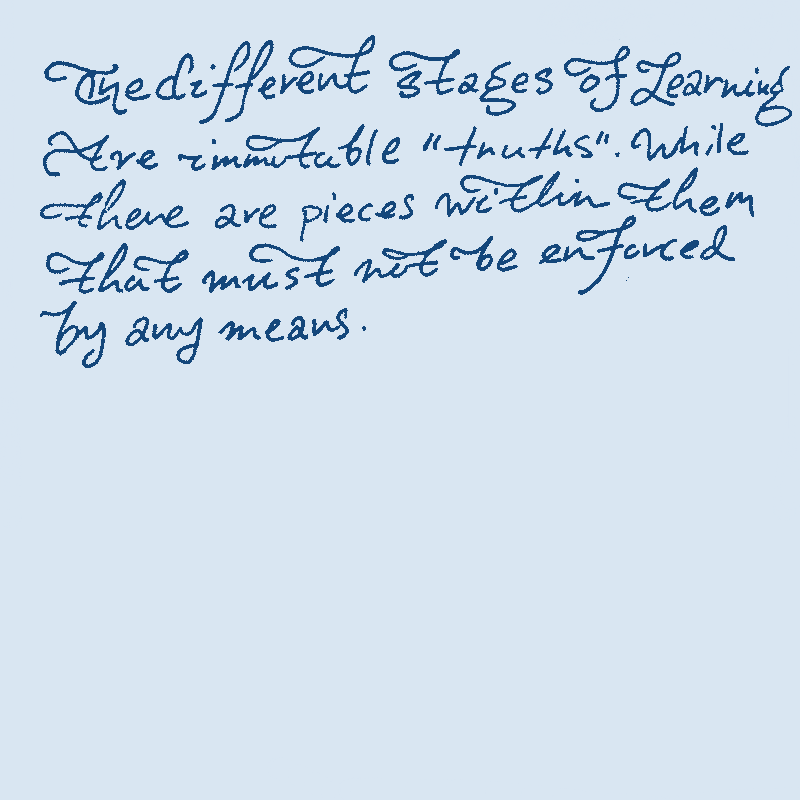 The different stages of Learning
Are immutable "truths". While
there are pieces within them
that must not be enforced
by any means.